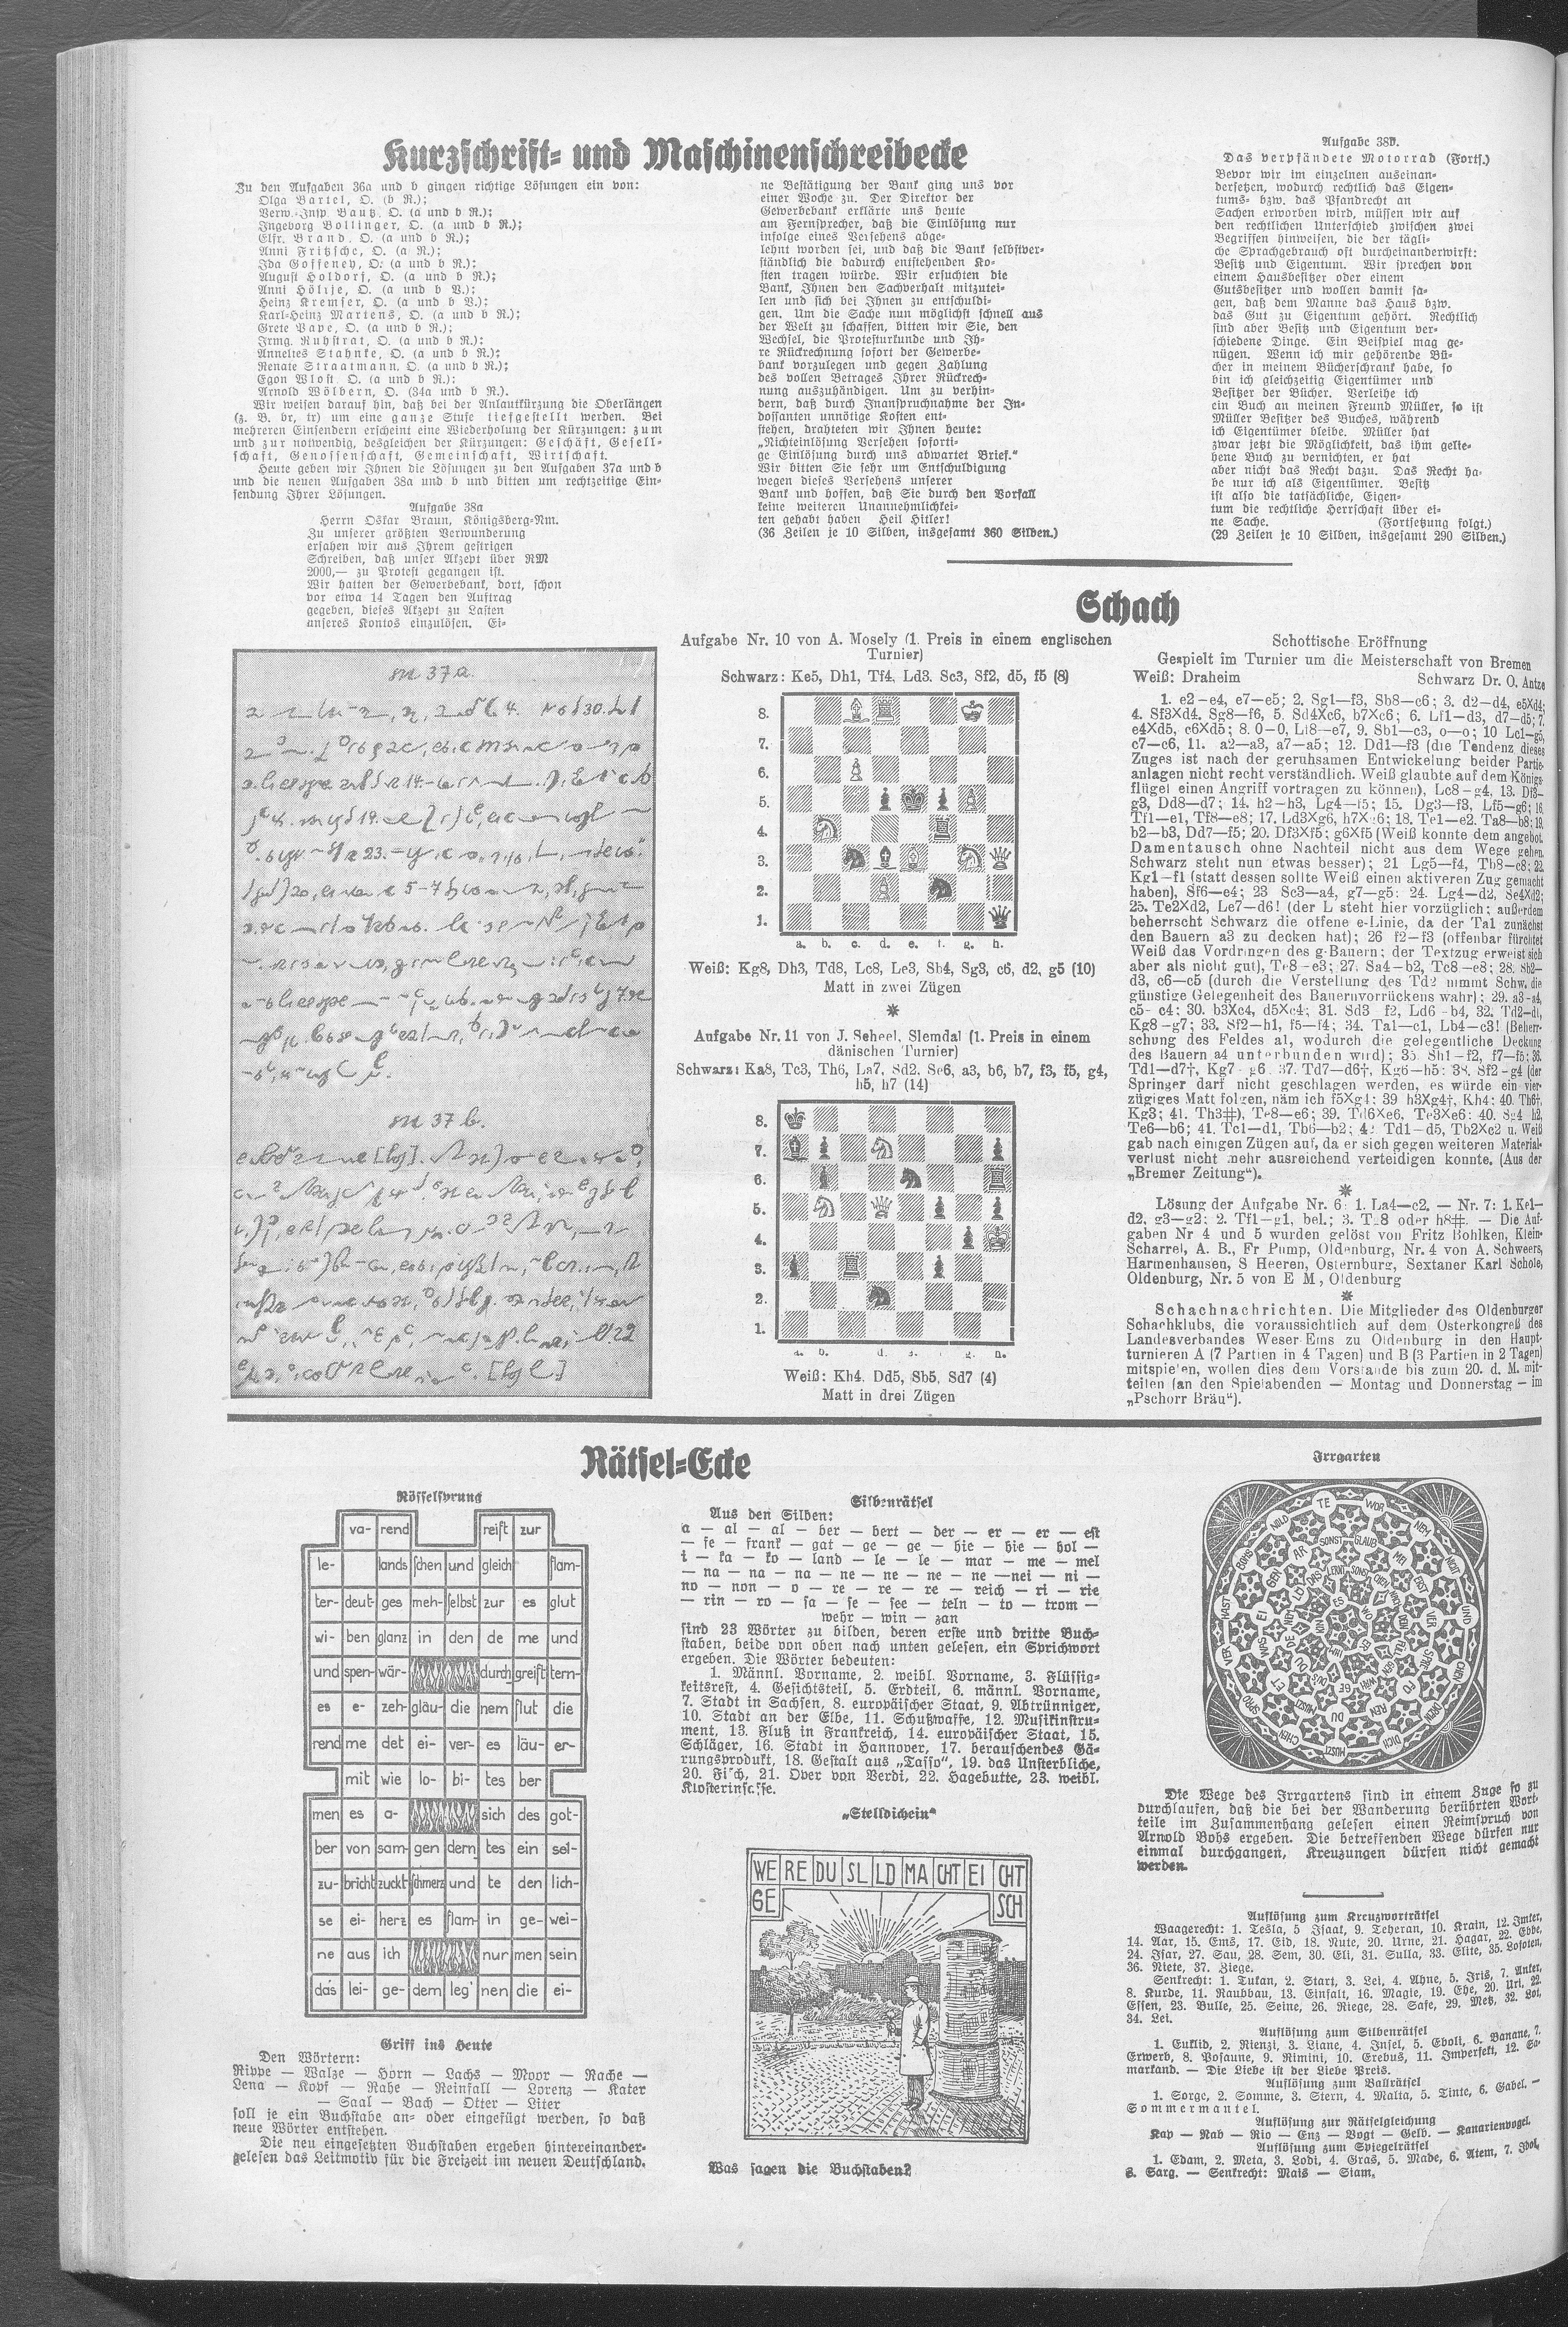 Kurzschrift- und Maschinenschreibecke
Zu den Aufgaben 36a und b gingen richtige Lösungen ein von:
Olga Bartel, O. (b R.);
Verw.-Insp. Bautz, O. (a und b R.);
Ingeborg Bollinger, O. (a und b R.);
Elfr. Brand, O. (a und b R.);
Anni Fritzsche, O. (a R.);
Ida Goffeney, O. (a und b R.);
August Holdorf, O. (a und b R.);
Anni Höltje, O. (a und b B.);
Heinz Kremser, O. (a und b B.);
Karl-Heinz Martens, O. (a und b R.);
Grete Pape, O. (a und b R.);
Irmg. Ruhstrat, O. (a und b R.);
Annelies Stahnke, O. (a und b R.);
Renate Straatmann, O. (a und b R.);
Egon Wlost, O. (a und b R.);
Arnold Wölbern, O. (34a und b R.).
Wir weisen darauf hin, daß bei der Anlautkürzung die Oberlängen
(z. B. br, tr) um eine ganze Stufe tiefgestellt werden. Bei
mehreren Einsendern erscheint eine Wiederholung der Kürzungen: zum
und zur notwendig, desgleichen der Kürzungen: Geschäft, Gesell-
schaft, Genossenschaft, Gemeinschaft, Wirtschaft.
Heute geben wir Ihnen die Lösungen zu den Aufgaben 37a und b
und die neuen Aufgaben 38a und b und bitten um rechtzeitige Ein-
sendung Ihrer Lösungen.
Aufgabe 38a
Herrn Oskar Braun, Königsberg-Nm.
Zu unserer größten Verwunderung
ersahen wir aus Ihrem gestrigen
Schreiben, daß unser Akzept über RM
2000,— zu Protest gegangen ist.
Wir hatten der Gewerbebank, dort, schon
vor etwa 14 Tagen den Auftrag
gegeben, dieses Akzept zu Lasten
unseres Kontos einzulösen. Ei-
ne Bestätigung der Bank ging uns vor
einer Woche zu. Der Direktor der
Gewerbebank erklärte uns heute
am Fernsprecher, daß die Einlösung nur
infolge eines Versehens abge-
lehnt worden sei, und daß die Bank selbstver-
ständlich die dadurch entstehenden Ko-
sten tragen würde. Wir ersuchten die
Bank, Ihnen den Sachverhalt mitzutei-
len und sich bei Ihnen zu entschuldi-
gen. Um die Sache nun möglichst schnell aus
der Welt zu schaffen, bitten wir Sie, den
Wechsel, die Protesturkunde und Ih-
re Rückrechnung sofort der Gewerbe-
bank vorzulegen und gegen Zahlung
des vollen Betrages Ihrer Rückrech-
nung auszuhändigen. Um zu verhin-
dern, daß durch Inanspruchnahme der In-
dossanten unnötige Kosten ent-
stehen, drahteten wir Ihnen heute:
„Nichteinlösung Versehen soforti-
ge Einlösung durch uns abwartet Brief.“
Wir bitten Sie sehr um Entschuldigung
wegen dieses Versehens unserer
Bank und hoffen, daß Sie durch den Vorfall
keine weiteren Unannehmlichkei-
ten gehabt haben Heil Hitler!
(36 Zeilen je 10 Silben, insgesamt 360 Silben.)
Aufgabe 38b.
Das verpfändete Motorrad (Forts.)
Bevor wir im einzelnen auseinan-
dersetzen, wodurch rechtlich das Eigen-
tums- bzw. das Pfandrecht an
Sachen erworben wird, müssen wir auf
den rechtlichen Unterschied zwischen zwei
Begriffen hinweisen, die der tägli-
che Sprachgebrauch oft durcheinanderwirft:
Besitz und Eigentum. Wir sprechen von
einem Hausbesitzer oder einem
Gutsbesitzer und wollen damit sa-
gen, daß dem Manne das Haus bzw.
das Gut zu Eigentum gehört. Rechtlich
sind aber Besitz und Eigentum ver-
schiedene Dinge. Ein Beispiel mag ge-
nügen. Wenn ich mir gehörende Bü-
cher in meinem Bücherschrank habe, so
bin ich gleichzeitig Eigentümer und
Besitzer der Bücher. Verleihe ich
ein Buch an meinen Freund Müller, so ist
Müller Besitzer des Buches, während
ich Eigentümer bleibe. Müller hat
zwar jetzt die Möglichkeit, das ihm gelie-
hene Buch zu vernichten, er hat
aber nicht das Recht dazu. Das Recht ha-
be nur ich als Eigentümer. Besitz
ist also die tatsächliche, Eigen-
tum die rechtliche Herrschaft über ei-
ne Sache. (Fortsetzung folgt.)
(29 Zeilen je 10 Silben, insgesamt 290 Silben.)
37a.
37b.
Schach
Aufgabe Nr. 10 von A. Mosely (1. Preis in einem englischen
Turnier)
Schwarz: Ke5, Dh1, Tf4, Ld3. Sc3, Sf2, d5, f5 (8)
8.
7.
6.
5.
4.
3.
2.
1.
a. b. c. d. e. f. g. h.
Weiß: Kg8, Dh3, Td8, Lc8, Le3, Sb4, Sg3, c6, d2, g5 (10)
Matt in zwei Zügen
Aufgabe Nr. 11 von J. Scheel, Slemdal (1. Preis in einem
dänischen Turnier)
Schwarz: Ka8, Tc3, Th6, La7, Sd2, Se6, a3, b6, b7, f3, f5, g4,
h5, h7 (14)
8.
7.
6.
5.
4.
3.
2.
1.
Weiß: Kh4. Dd5, Sb5, Sd7 (4)
Matt in drei Zügen
Schottische Eröffnung
Gespielt im Turnier um die Meisterschaft von Bremen
Weiß: Draheim Schwarz Dr. O. Antze
1. e2—e4, e7—e5; 2. Sg1—f3, Sb8—c6; 3. d2—d4, e5Xd4;
4. Sf3Xd4. Sg8—f6, 5. Sd4Xc6, b7Xc6; 6. Lf1—d3, d7—d5; 7.
e4Xd5, c6Xd5; 8. 0—0, Lf8—e7, 9. Sb1—c3, o—o; 10 Lc1—g5,
c7—c6, 11. a2—a3, a7—a5; 12. Dd1—f3 (die Tendenz dieses
Zuges ist nach der geruhsamen Entwickelung beider Partie-
anlagen nicht recht verständlich. Weiß glaubte auf dem Königs-
flügel einen Angriff vortragen zu können), Lc8—g4, 13. Df3—
g3, Dd8—d7; 14. h2—h3, Lg4—f5; 15. Dg3—f3, Lf5—g6; 16.
Tf1—e1, Tf8—e8; 17. Ld3Xg6, h7Xg6; 18. Te1—e2. Ta8—b8; 19.
b2—b3, Dd7—f5; 20. Df3Xf5; g6Xf5 (Weiß konnte dem angebot.
Damentausch ohne Nachteil nicht aus dem Wege gehen,
Schwarz steht nun etwas besser); 21 Lg5—f4, Tb8—c8; 22.
Kg1—f1 (statt dessen sollte Weiß einen aktiveren Zug gemacht
haben), Sf6—e4; 23 Sc3—a4, g7—g5; 24. Lg4—d2, Se4Xd2;
25. Te2Xd2, Le7—d6! (der L steht hier vorzüglich; außerdem
beherrscht Schwarz die offene e-Linie, da der Ta1 zunächst
den Bauern a3 zu decken hat); 26 f2—f3 (offenbar fürchtet
Weiß das Vordringen des g-Bauern; der Textzug erweist sich
aber als nicht gut), Te8—e3; 27. Sa4—b2, Tc8—e8; 28. Sb2—
d3, c6—c5 (durch die Verstellung des Td2 nimmt Schw. die
günstige Gelegenheit des Bauernvorrückens wahr); 29. a3-a4,
c5—c4; 30. b3Xc4, d5Xc4; 31. Sd3—f2, Ld6—b4, 32. Td2—d1,
Kg8—g7; 33. Sf2—h1, f5—f4; 34. Ta1—c1, Lb4—c3! (Beherr-
schung des Feldes a1, wodurch die gelegentliche Deckung
des Bauern a4 unterbunden wird); 35. Sh1—f2, f7—f5; 36.
Td1—d7†, Kg7—g6 37. Td7—d6†, Kg6—h5; 38. Sf2—g4 (der
Springer darf nicht geschlagen werden, es würde ein vier-
zügiges Matt folgen, nämlich f5Xg4; 39 h3Xg4†, Kh4; 40. Th6†,
Kg3; 41. Th3#), Te8—e6; 39. Td6Xe6, Te3Xe6; 40. Sg4—h2,
Te6—b6; 41. Tc1—d1, Tb6—b2; 42 Td1—d5, Tb2Xc2 u. Weiß
gab nach einigen Zügen auf, da er sich gegen weiteren Material-
verlust nicht mehr ausreichend verteidigen konnte. (Aus der
„Bremer Zeitung“).
Lösung der Aufgabe Nr. 6: 1. La4—c2. — Nr. 7: 1. Ke1—
d2, g3—g2; 2. Tf1—g1, bel.; 3. T 8 oder h8#. — Die Auf-
gaben Nr 4 und 5 wurden gelöst von Fritz Bohlken, Klein-
Scharrel, A. B., Fr Pump, Oldenburg, Nr. 4 von A. Schweers,
Harmenhausen, S Heeren, Osternburg, Sextaner Karl Schole,
Oldenburg, Nr. 5 von E M, Oldenburg
Schachnachrichten. Die Mitglieder des Oldenburger
Schachklubs, die voraussichtlich auf dem Osterkongreß des
Landesverbandes Weser-Ems zu Oldenburg in den Haupt-
turnieren A (7 Partien in 4 Tagen) und B (3 Partien in 2 Tagen)
mitspielen, wollen dies dem Vorstande bis zum 20. d. M. mit-
teilen (an den Spielabenden — Montag und Donnerstag — im
„Pschorr Bräu“).
Rätsel-Ecke
Rösselsprung
va- rend reist zur
le- lands schen und gleich flam-
ter- deut- ges meh- selbst zur es glut
wi- ben glanz in den de me und
und spen- wär- durch greift tern-
es e- zeh- gläu- die nem flut die
rend me det ei- ver- es läu- er-
mit wie lo- bi- tes ber
men es a- sich des got-
ber von sam- gen dern tes ein sel-
zu- bricht zuckt schmerz und te den lich-
se ei- herz es flam- in ge- wei-
ne aus ich nur men sein
das lei- ge- dem leg' nen die ei-
Griff ins Heute
Den Wörtern:
Rippe — Walze — Horn — Lachs — Moor — Rache —
Lena — Kopf — Nahe — Reinfall — Lorenz — Kater
— Saal — Bach — Otter — Liter
soll je ein Buchstabe an- oder eingefügt werden, so daß
neue Wörter entstehen.
Die neu eingesetzten Buchstaben ergeben hintereinander-
gelesen das Leitmotiv für die Freizeit im neuen Deutschland.
Silbenrätsel
Aus den Silben:
a — al — al — ber — bert — der — er — er — est
— fe — frank — gat — ge — ge — hie — hie — hol —
i — ka — ko — land — le — le — mar — me — mel
— na — na — na — ne — ne — ne — ne —nei — ni —
no — non — o — re — re — re — reich — ri — rie
— rin — ro — sa — se — see — teln — to — trom —
wehr — win — zan
sind 23 Wörter zu bilden, deren erste und dritte Buch-
staben, beide von oben nach unten gelesen, ein Sprichwort
ergeben. Die Wörter bedeuten:
1. Männl. Vorname, 2. weibl. Vorname, 3. Flüssig-
keitsrest, 4. Gesichtsteil, 5. Erdteil, 6. männl. Vorname,
7. Stadt in Sachsen, 8. europäischer Staat, 9. Abtrünniger,
10. Stadt an der Elbe, 11. Schußwaffe, 12. Musikinstru-
ment, 13. Fluß in Frankreich, 14. europäischer Staat, 15.
Schläger, 16. Stadt in Hannover, 17. berauschendes Gä-
rungsprodukt, 18. Gestalt aus „Tasso“, 19. das Unsterbliche,
20. Fisch, 21. Oper von Verdi, 22. Hagebutte, 23. weibl.
Klosterinsasse.
„Stelldichein“
WE RE DU SL LD MA CHT EI CHT
GE SCH
Was sagen die Buchstaben?
Irrgarten
Die Wege des Irrgartens sind in einem Zuge so zu
durchlaufen, daß die bei der Wanderung berührten Wort-
teile im Zusammenhang gelesen einen Reimspruch von
Arnold Bohs ergeben. Die betreffenden Wege dürfen nur
einmal durchgangen, Kreuzungen dürfen nicht gemacht
werden.
Auflösung zum Kreuzworträtsel
Waagerecht: 1. Tesla, 5 Isaat, 9. Teheran, 10. Krain, 12. Imker,
14. Aar, 15. Ems, 17. Eid, 18. Rute, 20. Urne, 21. Hagar, 22. Ebbe,
24. Isar, 27. Sau, 28. Sem, 30. Eli, 31. Sulla, 33. Elite, 35. Lofoten,
36. Niete, 37. Ziege.
Senkrecht: 1. Tukan, 2. Start, 3. Lei, 4. Ahne, 5. Iris, 7. Anker,
8. Kurde, 11. Raubbau, 13. Einfalt, 16. Magie, 19. Ehe, 20. Uri, 22.
Essen, 23. Bulle, 25. Seine, 26. Riege, 28. Safe, 29. Metz, 32. Lot,
34. Lei.
Auflösung zum Silbenrätsel
1. Euklid, 2. Rienzi, 3. Liane, 4. Insel, 5. Eboli, 6. Banane, 7.
Erwerb, 8. Posaune, 9. Rimini, 10. Erebus, 11. Imperfekt, 12. Sa-
markand. — Die Liebe ist der Liebe Preis.
Auflösung zum Ballrätsel
1. Sorge, 2. Somme, 3. Stern, 4. Malta, 5. Tinte, 6. Gabel. —
Sommermantel.
Auflösung zur Rätselgleichung
Kap — Rab — Rio — Enz — Vogt — Gelb. — Kanarienvogel.
Auflösung zum Spiegelrätsel
1. Edam, 2. Meta, 3. Lodi, 4. Gras, 5. Made, 6. Atem, 7. Idol,
8. Sarg. — Senkrecht: Mais — Siam.